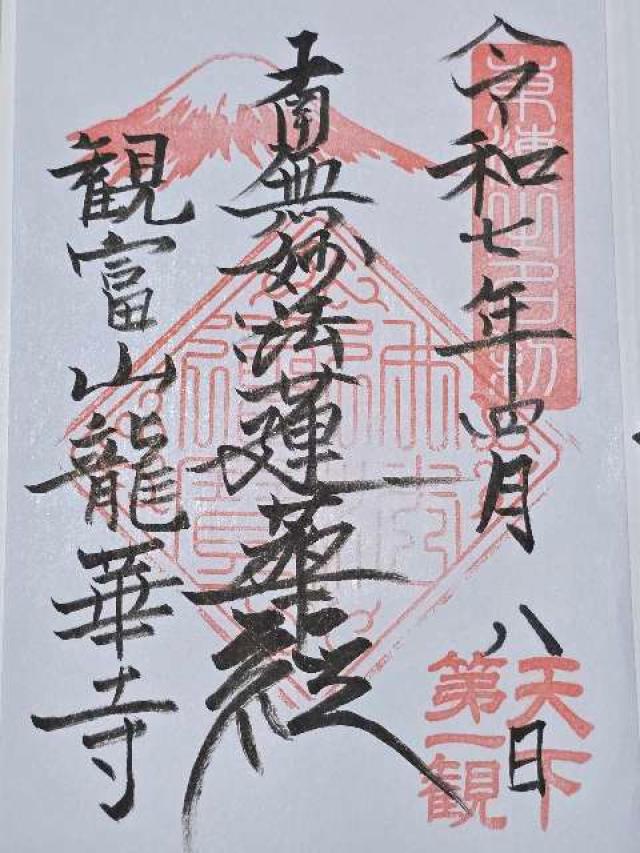 令和七年四月八日
南無妙法蓮華経
観富山龍華寺
天下
第一観